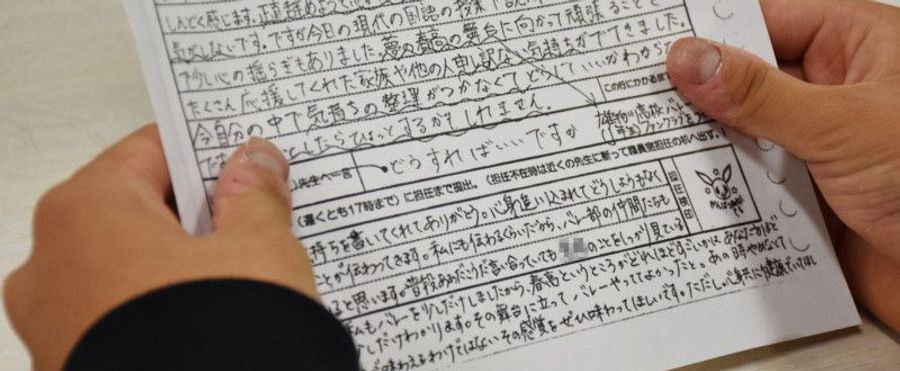 しんどく感じます。正直辞めようと
気がしないです。ですが今日の現代の国語の授業で
で少し心の揺らぎもありました。夢の春高の舞台に向かって頑張ることで
たくさん応援してくれた家族や他の人に申し訳ない気持ちがでてきました。
今自分の中で気持ちの整理がつかなくてどうしていいかわからな
としたらひょっとするかもしれません。
この行にかかるまで
雄物川高校バレー
先生へ一言
どうすればいいですか
(遅くとも17時まで)に担任まで提出。(担任不在時は近くの先生に断って職員室担任の机へ出す。)
担任検印
がんばっ
持ちを書いてくれてありがとう。心身追い込まれてどうしようもない
ことが伝わってきます。私にも伝わるくらいだから、バレー部の仲間たちも
のことをしっかり見ている
ると思います。普段あーだこーだ言い合っていても
私もバレーを少しだけしましたから、春高というところがどれほどすごいかは、あなたほど
しだけわかります。その舞台に立ってバレーやっててよかったと、あの時やめなくて
味わえるわけではないその感覚をぜひ味わってほしいです。ただし心身共に健康でいてほし